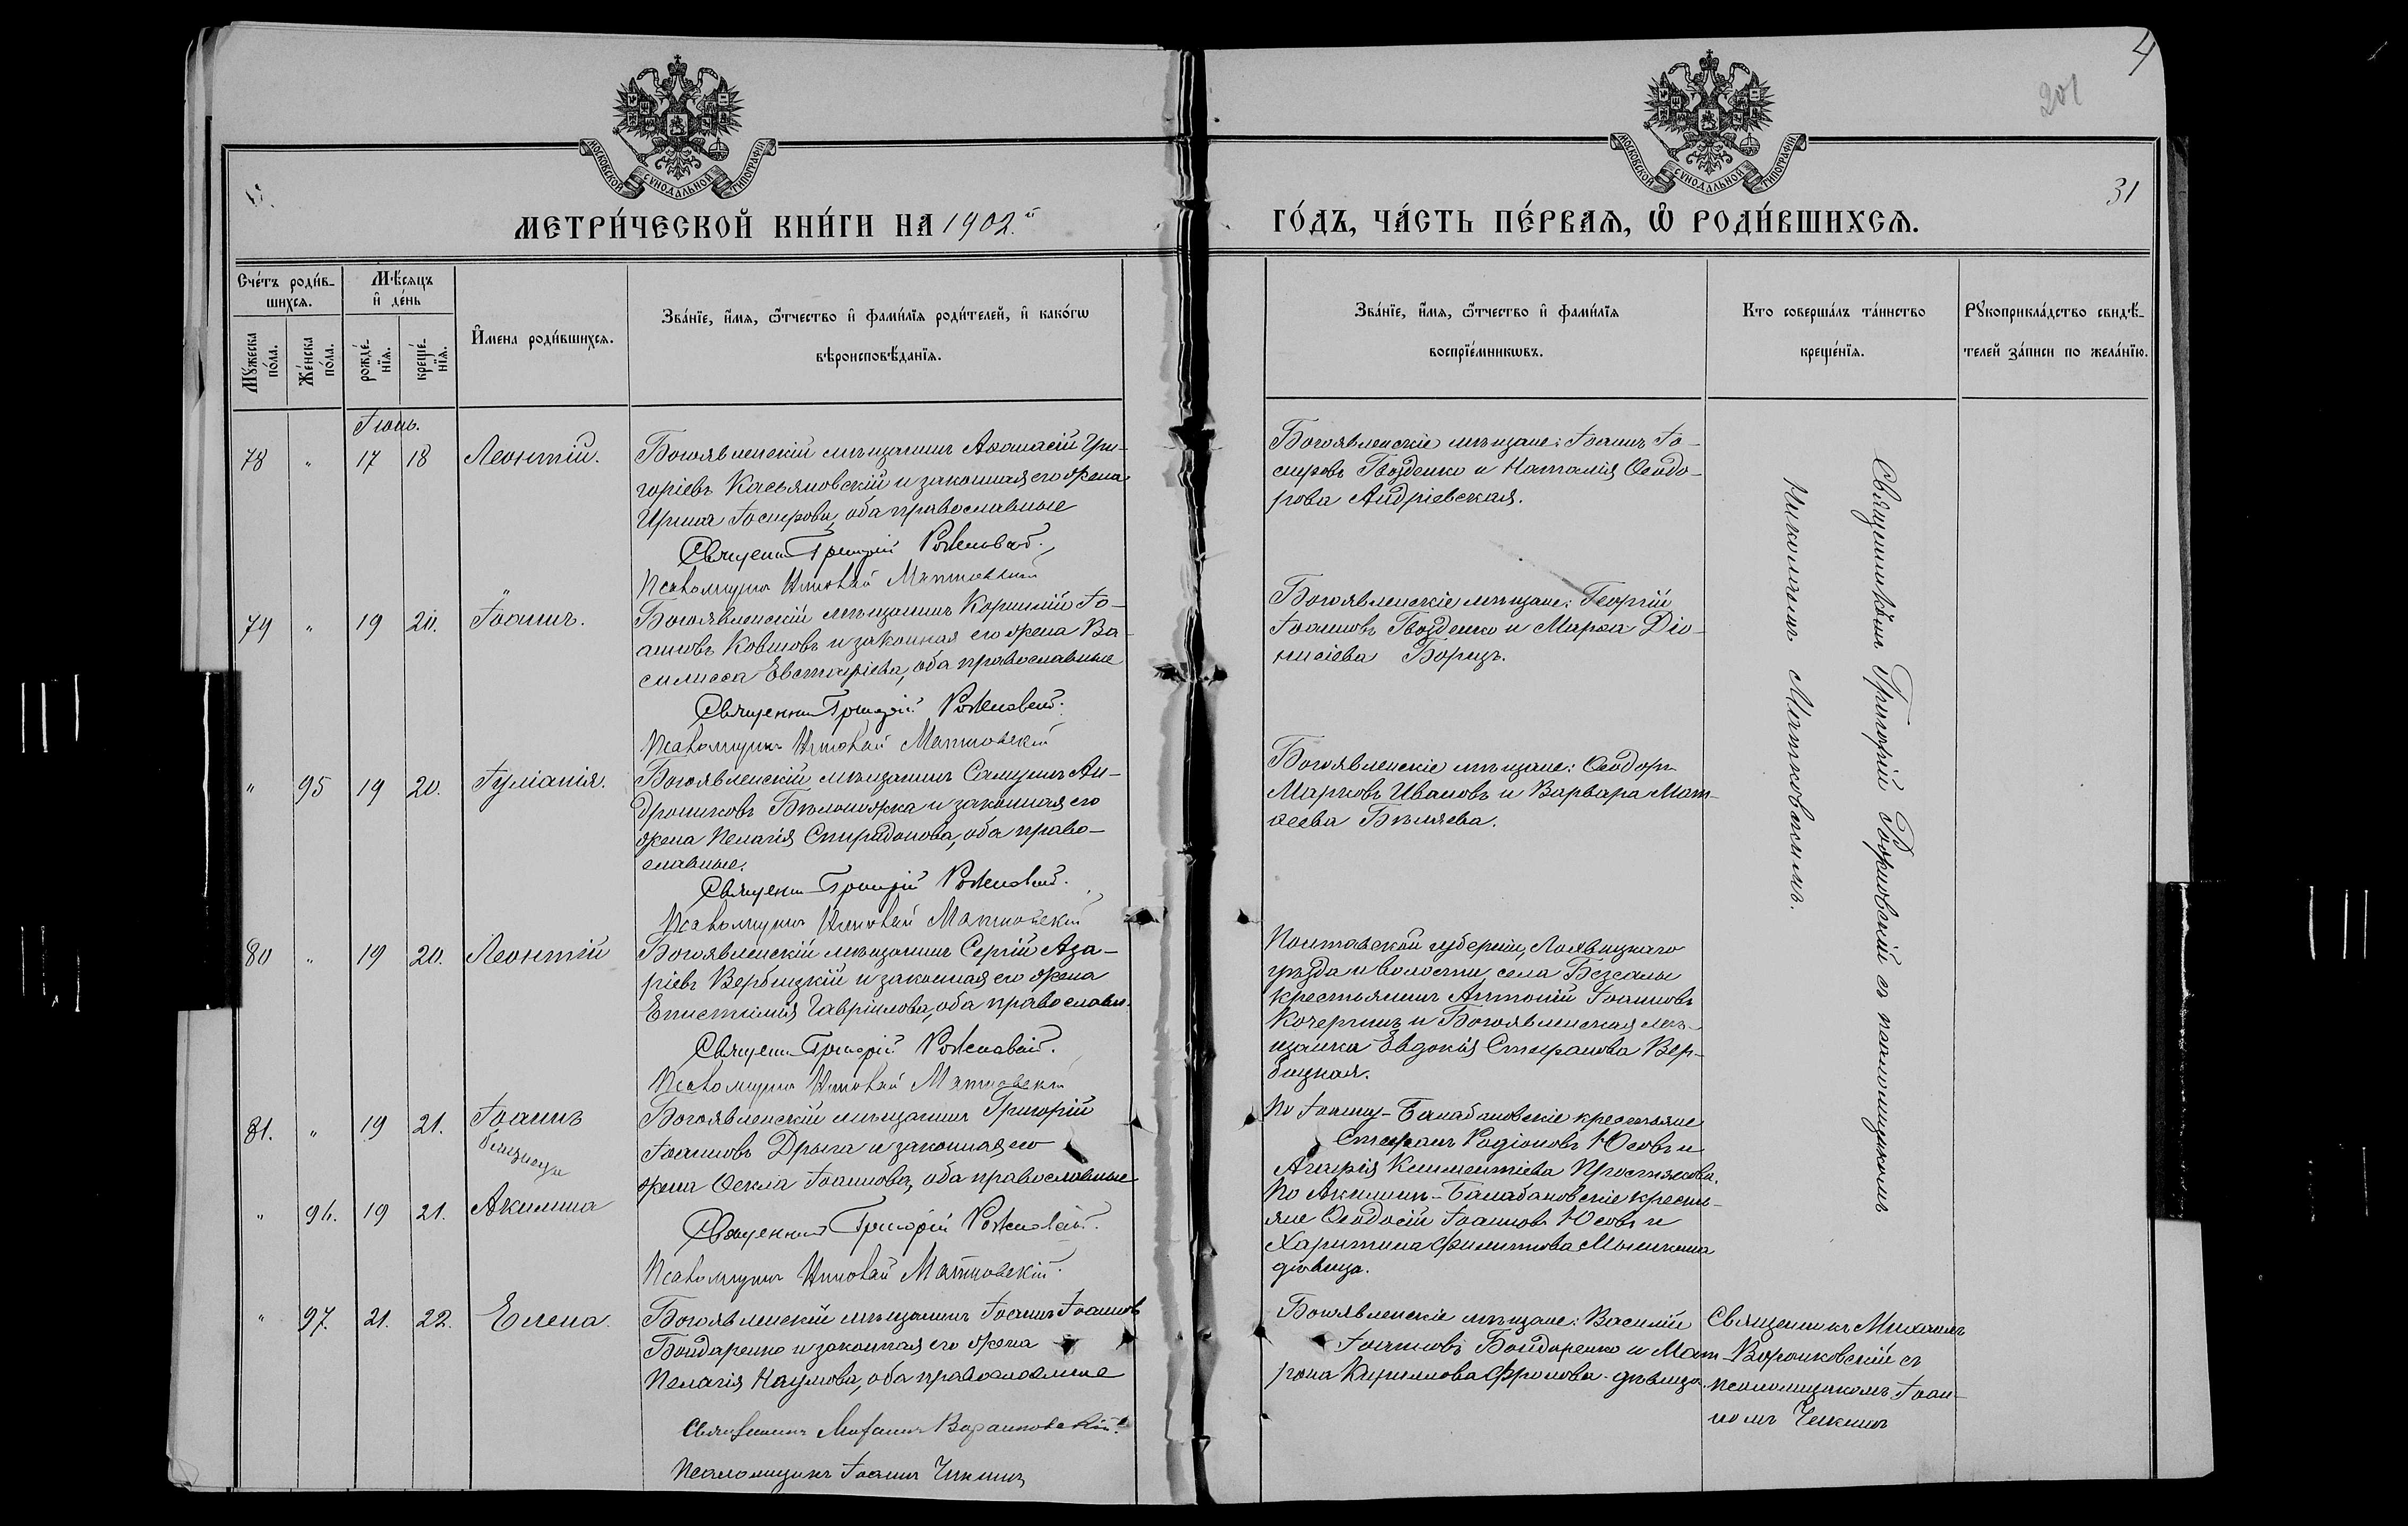 4
201
31
МОСКОВСКОЙ СѴНОДАЛЬНОЙ ТИПОГРАФІИ
МОСКОВСКОЙ СѴНОДАЛЬНОЙ ТИПОГРАФІИ
МЕТРИ́ЧЕСКОЙ КНИ́ГИ НА 1902.й
ГО́ДЪ, ЧА́СТЬ ПЕ́РВАЯ, Ѡ҆ РОДИ́ВШИХСѦ.
Сче́тъ роди́в-
шихсѧ.
Мꙋжеска по́ла.
Же́нска по́ла.
Мѣ́сѧцъ
и҆ де́нь
рожде́-
нїѧ.
креще́-
нїѧ.
И҆мена роди́вшихсѧ.
Зва́нїе, и҆́мѧ, ѻ҆́тчество и҆ фами́лїѧ роди́телей, и҆ како́гѡ
вѣроисповѣ́данїѧ.
Зва́нїе, и҆́мѧ, ѻ҆́тчество и҆ фами́лїѧ
воспрїе́мникѡвъ.
Кто соверша́лъ та́инство
креще́нїѧ.
Рꙋкоприкла́дство свидѣ́-
телей за́писи по жела́нїю.
Іюнь.
78 " 17 18 Леонтій.
Богоявленскій мѣщанинъ Аѳанасій Гри-
горіевъ Касьяновскій и законная его жена
Ирина Іосифова, оба православные
Священникъ Григорій
Псаломщикъ Николай
Богоявленскіе мѣщане: Іоаннъ Іо-
сифовъ Гвозденко и Наталія Ѳеодо-
рова Андріевская.
79 " 19 20. Іоаннъ.
Богоявленскій мѣщанинъ Корнилій Іо-
анновъ Ковшовъ и законная его жена Ва-
силисса Евстафіева, оба православные
Священникъ Григорій
Псаломщикъ Николай
Богоявленскіе мѣщане: Георгій
Іоанновъ Гвозденко и Марѳа Діо-
нисіева Борецъ.
" 95 19 20. Іуліанія.
Богоявленскій мѣщанинъ Самуилъ Ан-
дрониковъ Бѣлоножка и законная его
жена Пелагія Спиридонова, оба право-
славные.
Священникъ Григорій
Псаломщикъ Николай
Богоявленскіе мѣщане: Ѳеодоръ
Марковъ Ивановъ и Варвара Мат-
ѳеева Бѣляева.
80 " 19 20. Леонтій
Богоявленскій мѣщанинъ Сергій Аза-
ріевъ Вербицкій и законная его жена
Епистимія Гавріилова, оба православн.
Священникъ Григорій
Псаломщикъ Николай
Полтавской губерніи, Лохвицкаго
уѣзда и волости, села Безсалы
крестьянинъ Антоній Іоанновъ
Кочергинъ и Богоявленская мѣ-
щанка Евдокія Стефанова Вер-
бицкая.
81. " 19 21. Іоаннъ
близнецы
" 96. 19 21. Акилина
Богоявленскій мѣщанинъ Григорій
Іоанновъ Дрыга и законная его
жена Ѳекла Іоаннова, оба православные
Священникъ Григорій
Псаломщикъ Николай
По Іоанну - Балабановскіе крестьяне
Стефанъ Родіоновъ Юсовъ и
Агафія Климентіева
По Акилинѣ - Балабановскіе кресть-
яне Ѳеодосій Іоанновъ Юсовъ и
Харитина Филиппова
дѣвица.
Священникъ Григорій съ псаломщикомъ
Николаемъ
" 97. 21. 22. Елена.
Богоявленскій мѣщанинъ Іоаннъ Іоанновъ
Бондаренко и законная его жена
Пелагія Наумова, оба православные
Священникъ Михаилъ Воронковскій
Псаломщикъ Іоаннъ Чикинъ
Богоявленскіе мѣщане: Василій
Іоанновъ Бондаренко и Мат-
рона Кириллова Фролова - дѣвица.
Священникъ Михаилъ
Воронковскій съ
псаломщикомъ Іоан-
номъ Чикинъ